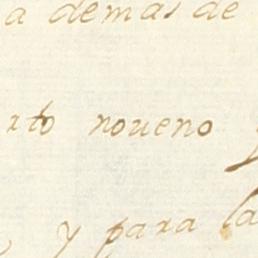 a demas de
rto noueno
y para la